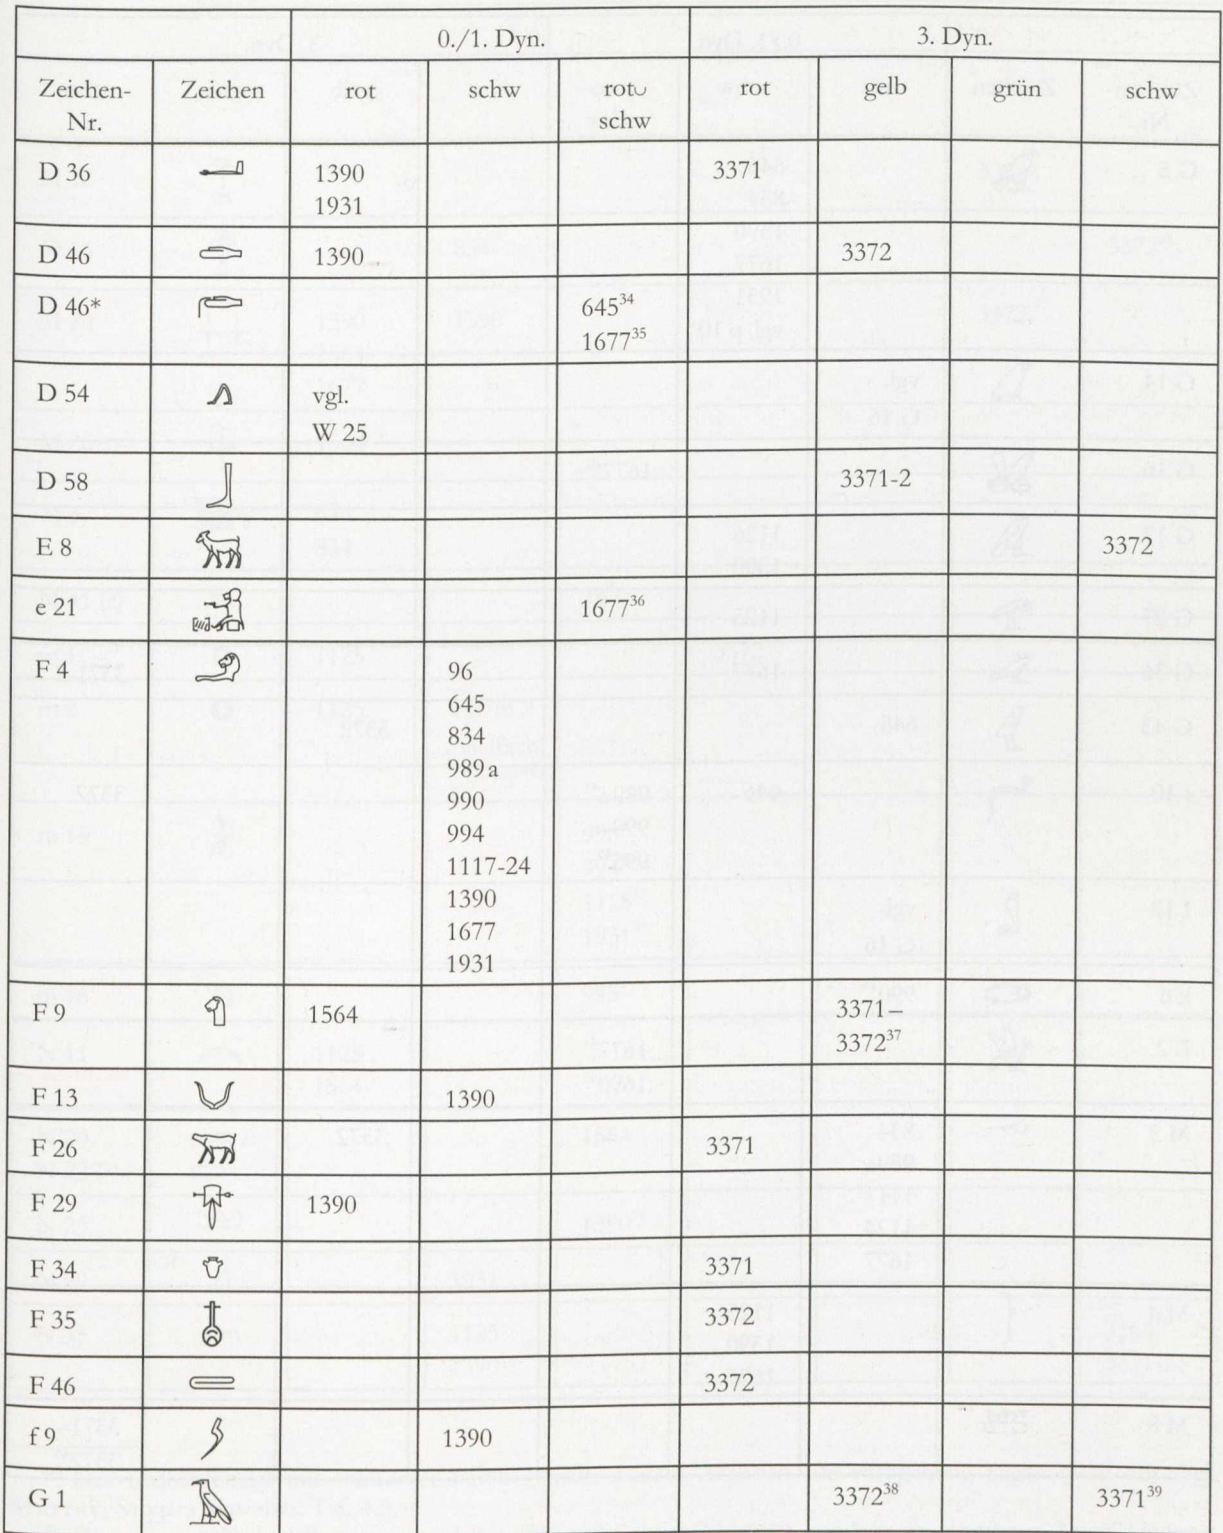 0./1. Dyn. 3. Dyn.
Zeichen- Zeichen rot schw rot∪ rot gelb grün schw
Nr. schw
D 36 𓂝 1390 3371
1931
D 46 𓂧 1390 3372
D 46* 645³⁴
1677³⁵
D 54 𓂻 vgl.
W 25
D 58 𓃀 3371-2
E 8 𓃙 3372
e 21 1677³⁶
F 4 𓄂 96
645
834
989 a
990
994
1117-24
1390
1677
1931
F 9 𓄇 1564 3371–
3372³⁷
F 13 𓄋 1390
F 26 𓄚 3371
F 29 𓄝 1390
F 34 𓄣 3371
F 35 𓄤 3372
F 46 𓄯 3372
f 9 1390
G 1 𓄿 3372³⁸ 3371³⁹